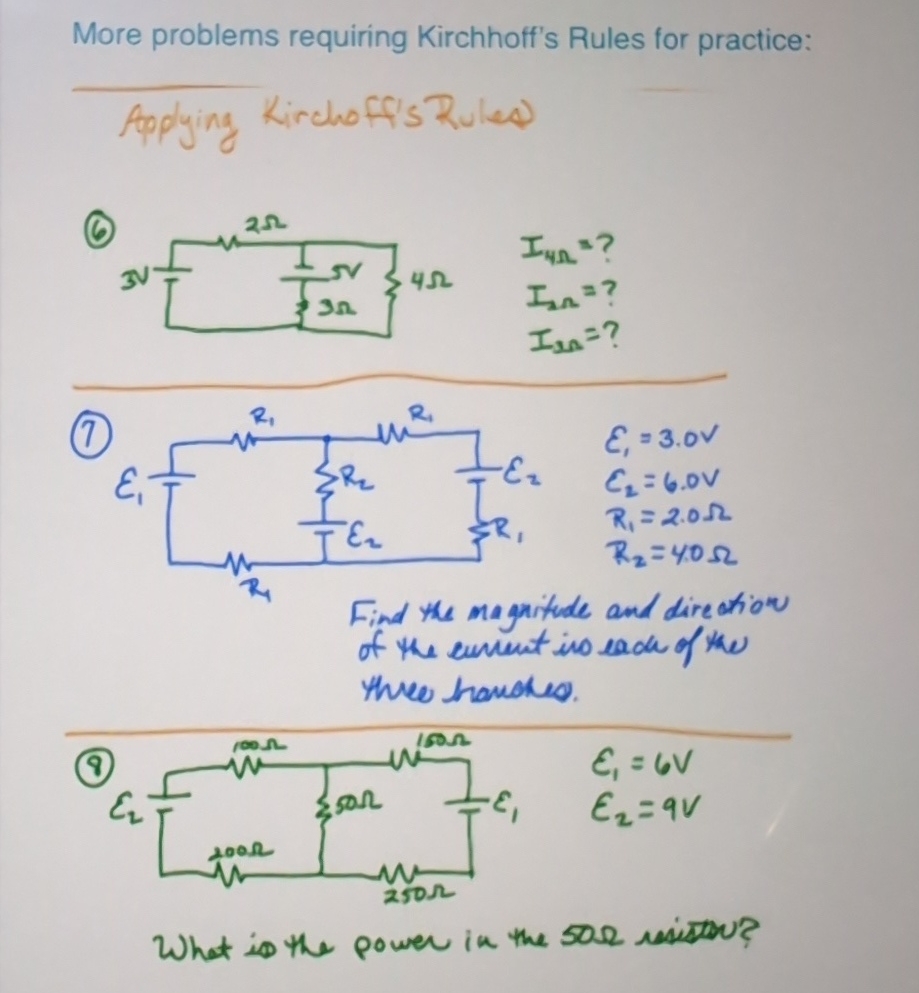 More problems requiring Kirchhoff's Rules for practice:
Applying Kirchoff's Rules
6
2Ω
3V
5V
3Ω
4Ω
I4Ω = ?
I2Ω = ?
I3Ω = ?
7
R₁
R₁
ℰ₁
R₂
ℰ₂
ℰ₂
R₁
R₁
ℰ₁ = 3.0V
ℰ₂ = 6.0V
R₁ = 2.0Ω
R₂ = 4.0Ω
Find the magnitude and direction
of the current in each of the
three branches.
8
100Ω
150Ω
ℰ₂
50Ω
ℰ₁
200Ω
250Ω
ℰ₁ = 6V
ℰ₂ = 9V
What is the power in the 50Ω resistor?